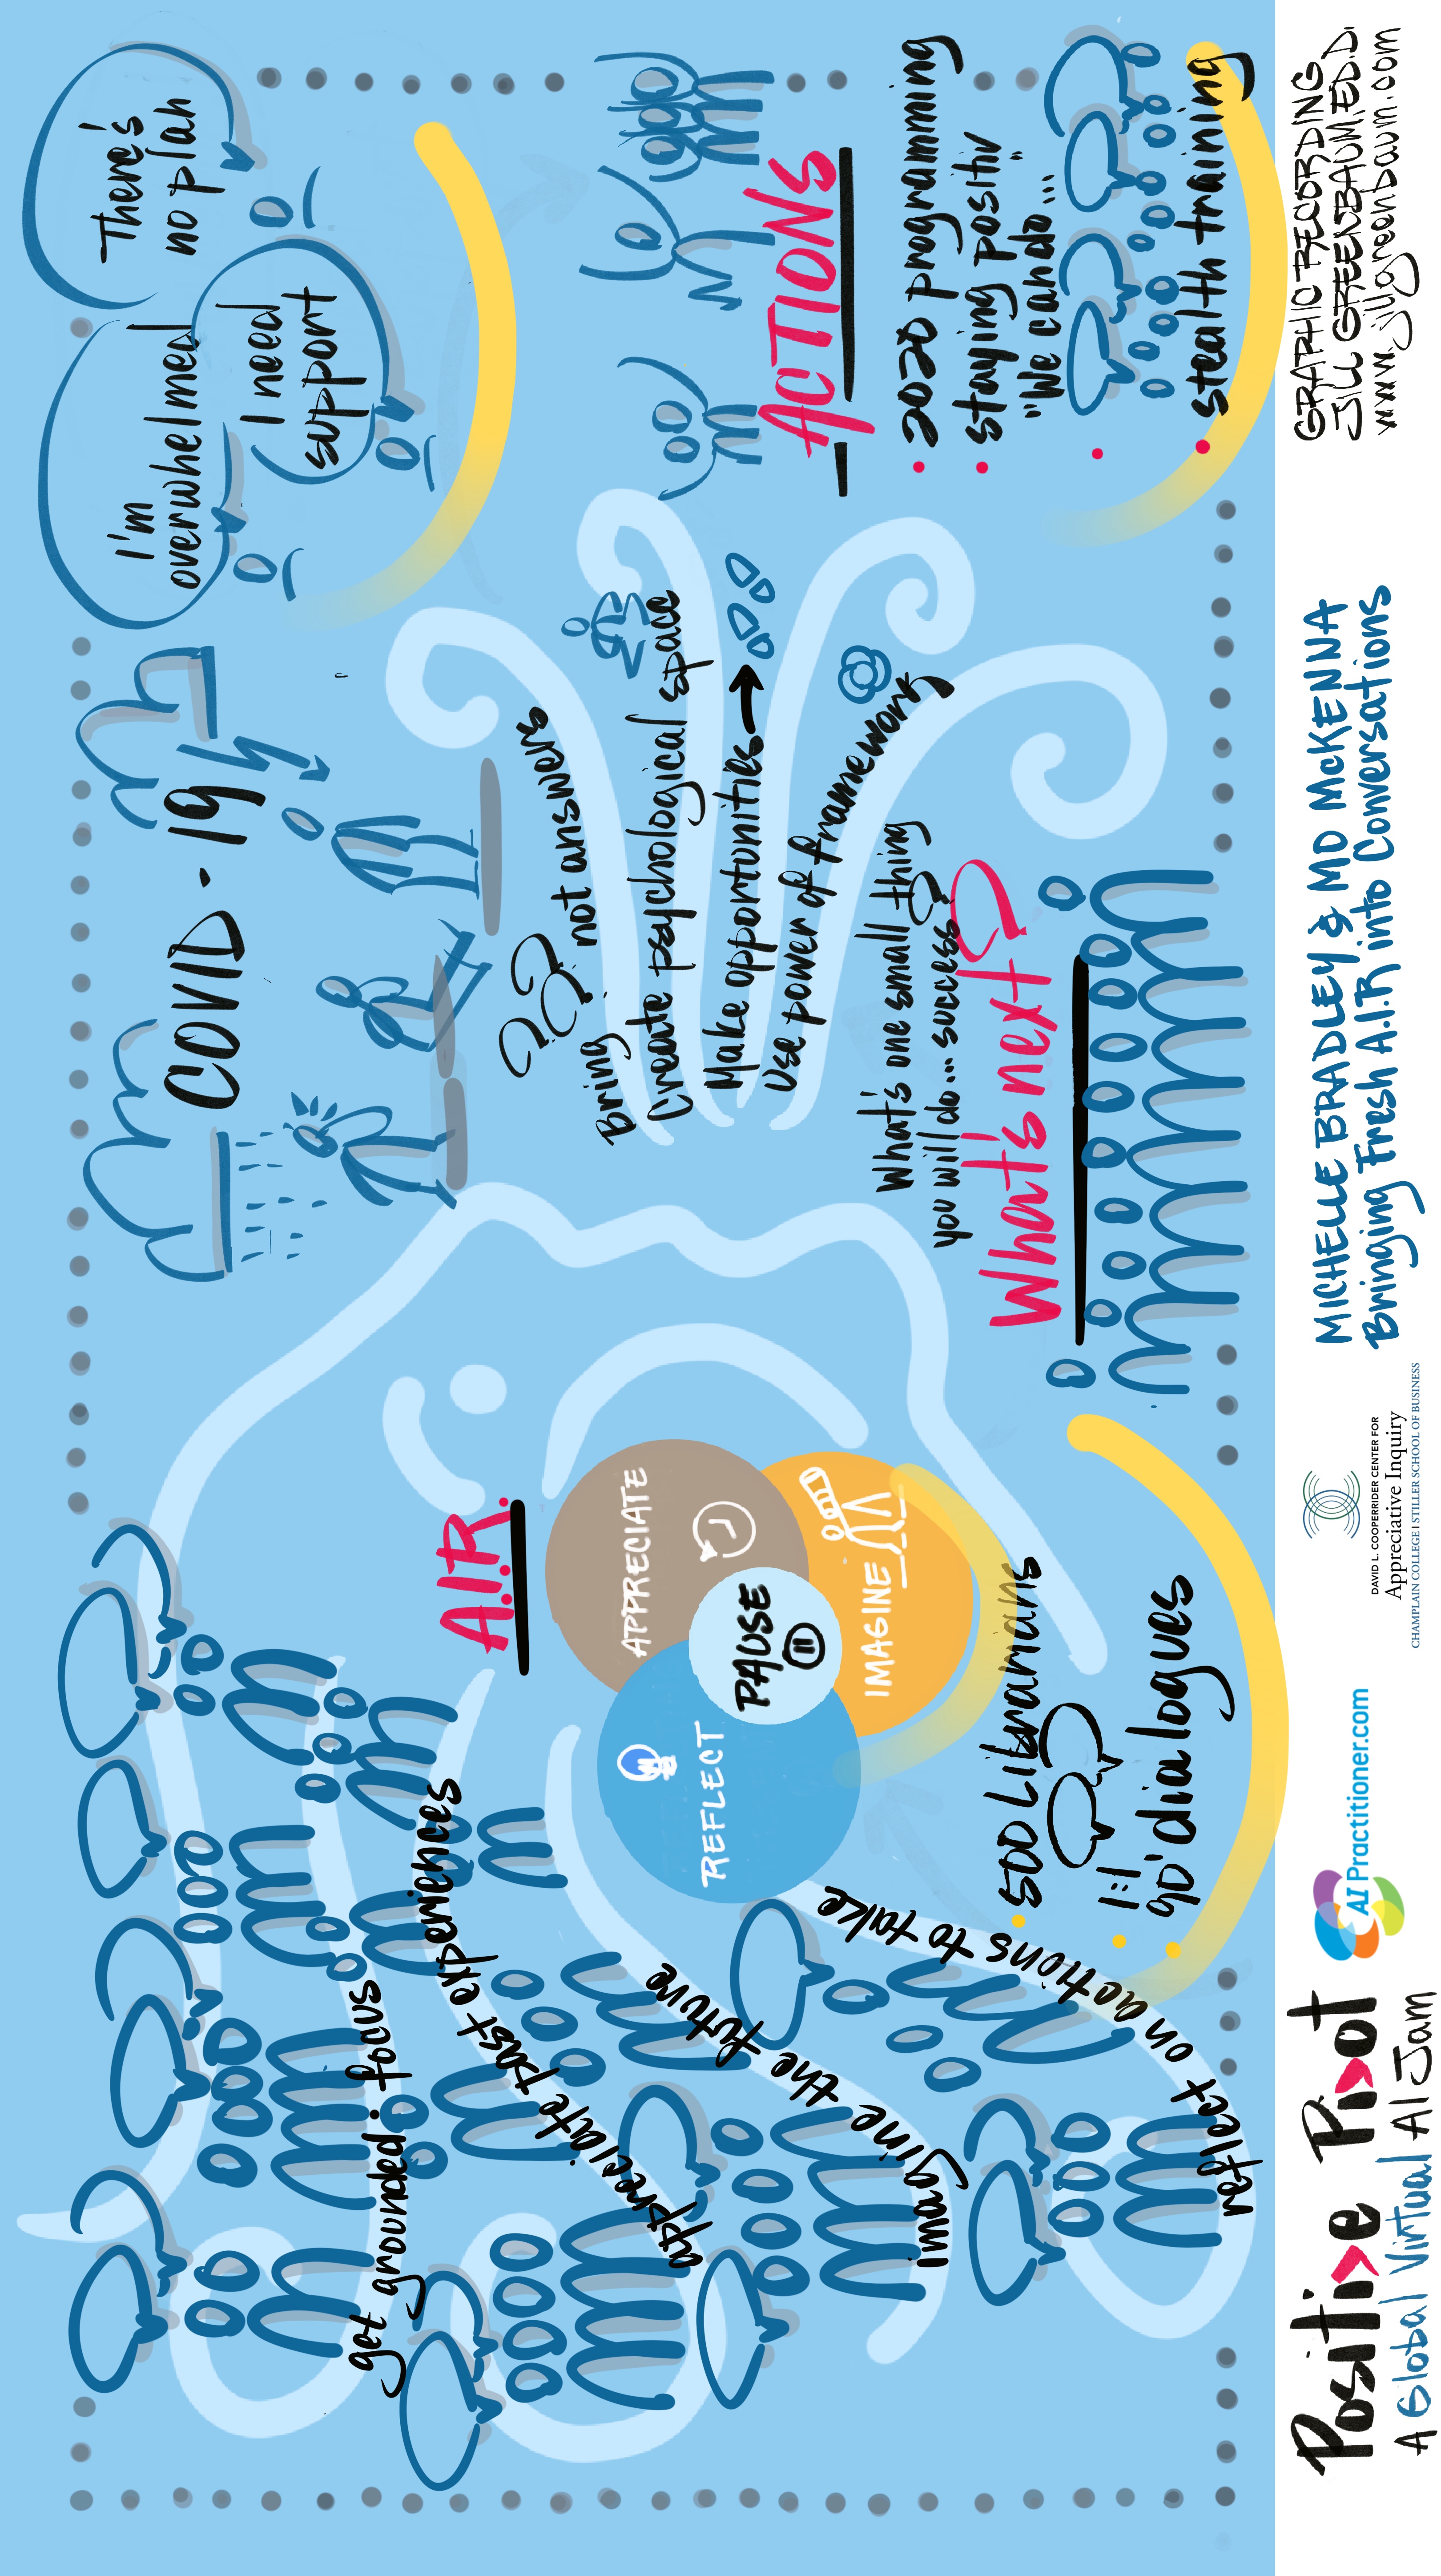 get grounded: focus
appreciate past experiences
imagine the future
reflect on actions to take
A.I.R.
APPRECIATE
REFLECT
PAUSE
IMAGINE
500 Librarians
1:1
90' dialogues
COVID-19
Bring ?? not answers
Create psychological space
Make opportunities →
Use power of framework
What's one small thing
you will do... success?
What's next?
I'm
overwhelmed
There's
no plan
I need
support
ACTIONS
2020 programming
staying positiv
"We can do..."
stealth training
Positive Pivot
A Global Virtual AI Jam
AI Practitioner.com
DAVID L. COOPERRIDER CENTER FOR
Appreciative Inquiry
CHAMPLAIN COLLEGE | STILLER SCHOOL OF BUSINESS
MICHELLE BRADLEY & MO McKENNA
Bringing Fresh A.I.R into Conversations
GRAPHIC RECORDING
JILL GREENBAUM, ED.D.
www.jillgreenbaum.com